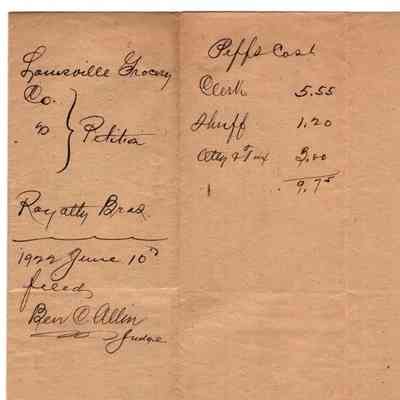 Louisville Grocery
Co.
vs } Petition
Royalty Bros.
1922 June 10th
filed
Ben C. Allin
Judge
Peffs Cost
Clerk 5.55
Shuff 1.20
Atty & Tax 3.00
9.75